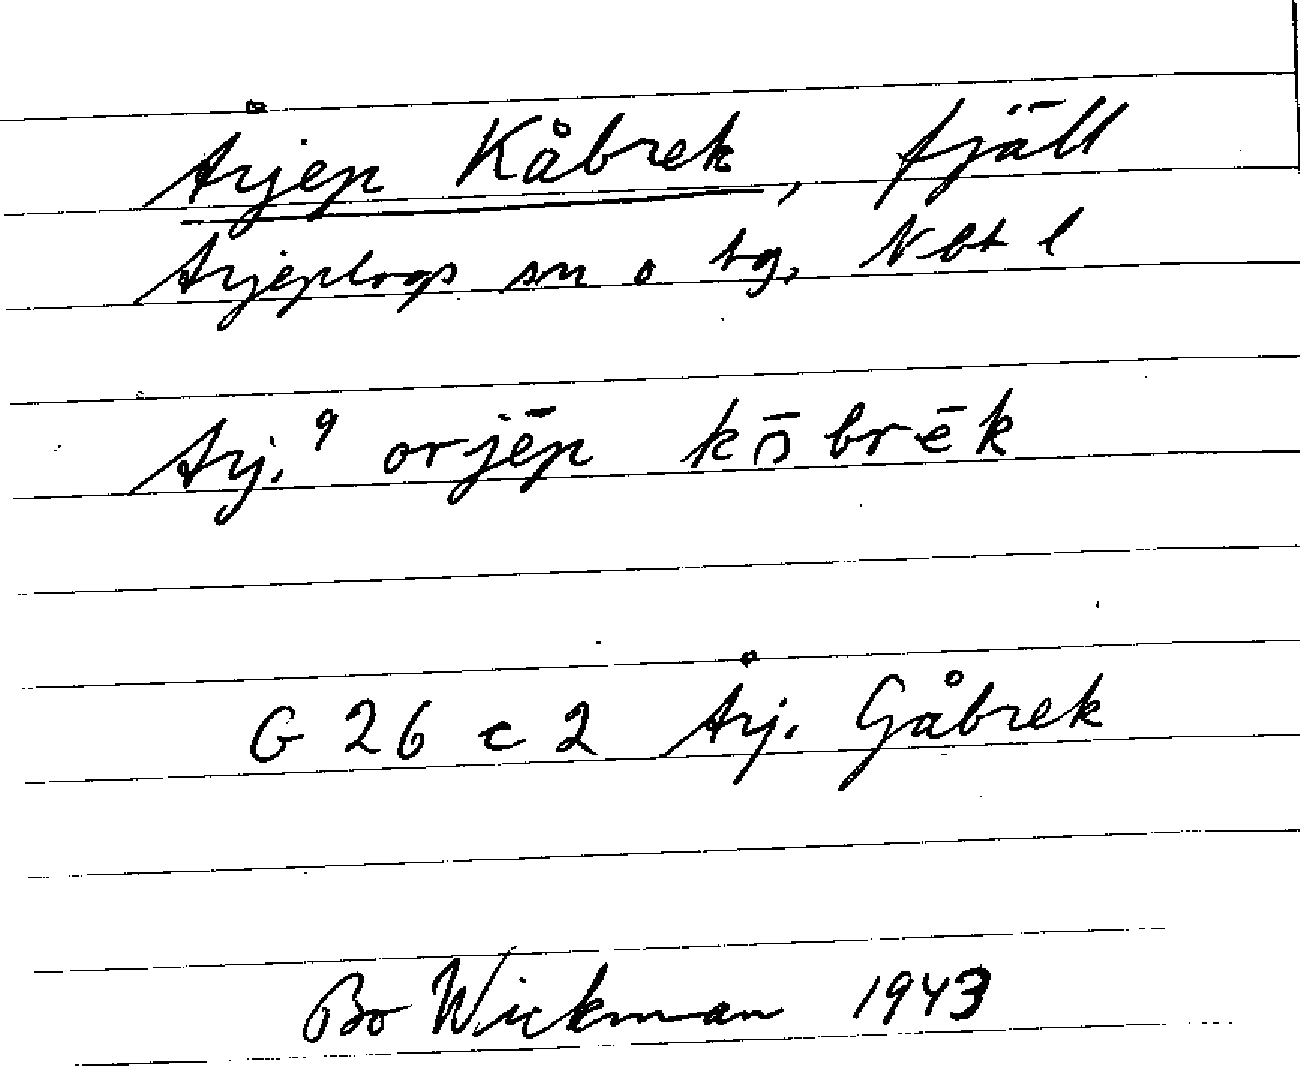 Årjep Kåbrek, fjäll
Arjeplogs sn o tg, Nbt l
Arj. 9 orjēp kɔ̄brēk
G 26 c 2 Årj. Gåbrek
Bo Wickman 1943